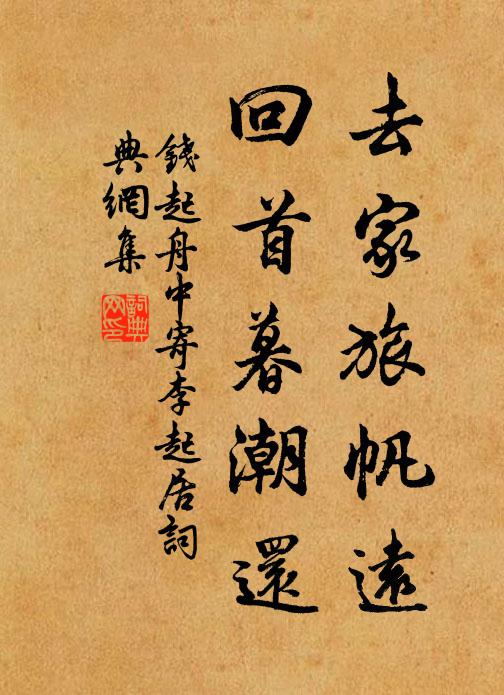 去家旅帆遠
回首暮潮還
錢起舟中寄李起居詞
典網集
詞典网印